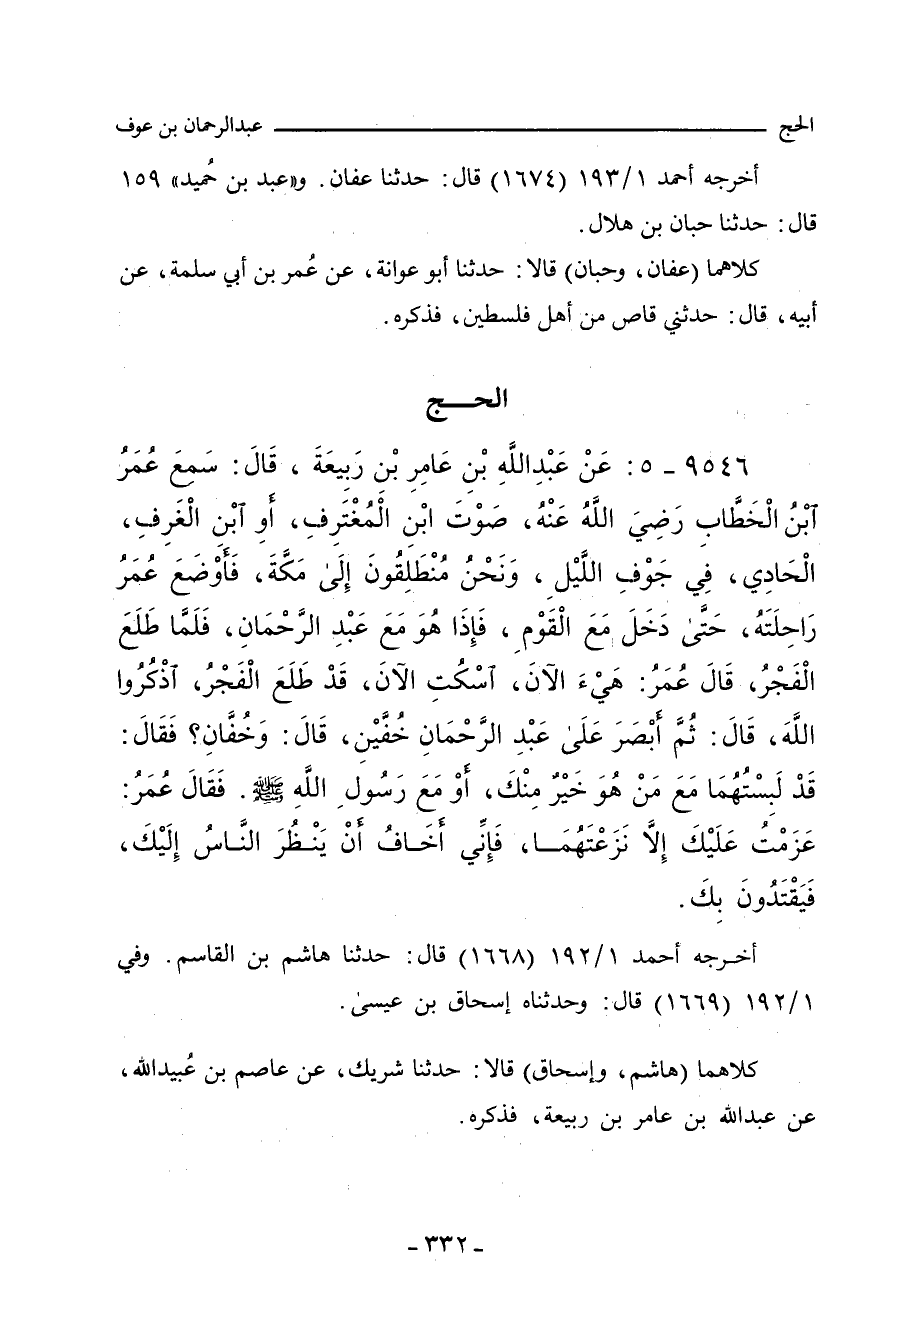 الحج ــــــ عبدالرحمان بن عوف
أخرجه أحمد ١٩٣/١ (١٦٧٤) قال: حدثنا عفان. و«عبد بن حُميد» ١٥٩
قال: حدثنا حبان بن هلال.
كلاهما (عفان، وحبان) قالا: حدثنا أبو عوانة، عن عُمر بن أبي سلمة، عن
أبيه، قال: حدثني قاص من أهل فلسطين، فذكره.
الحـــج
٩٥٤٦ - ٥: عَنْ عَبْدِاللَّهِ بْنِ عَامِرِ بْنِ رَبِيعَةَ، قَالَ: سَمِعَ عُمَرُ
ٱبْنُ الْخَطَّابِ رَضِيَ اللَّهُ عَنْهُ، صَوْتَ ابْنِ الْمُغْتَرِفِ، أَوِ ٱبْنِ الْغَرِفِ،
الْحَادِي، فِي جَوْفِ اللَّيْلِ، وَنَحْنُ مُنْطَلِقُونَ إِلَىٰ مَكَّةَ، فَأَوْضَعَ عُمَرُ
رَاحِلَتَهُ، حَتَّىٰ دَخَلَ مَعَ الْقَوْمِ، فَإِذَا هُوَ مَعَ عَبْدِ الرَّحْمَانِ، فَلَمَّا طَلَعَ
الْفَجْرُ، قَالَ عُمَرُ: هَيْءَ الآنَ، ٱسْكُتِ الآنَ، قَدْ طَلَعَ الْفَجْرُ، ٱذْكُرُوا
اللَّهَ، قَالَ: ثُمَّ أَبْصَرَ عَلَىٰ عَبْدِ الرَّحْمَانِ خُفَّيْنِ، قَالَ: وَخُفَّانِ؟ فَقَالَ:
قَدْ لَبِسْتُهُمَا مَعَ مَنْ هُوَ خَيْرٌ مِنْكَ، أَوْ مَعَ رَسُولِ اللَّهِ ﷺ. فَقَالَ عُمَرُ:
عَزَمْتُ عَلَيْكَ إِلَّا نَزَعْتَهُمَــا، فَإِنِّي أَخَــافُ أَنْ يَنْـظُرَ النَّـاسُ إِلَيْكَ،
فَيَقْتَدُونَ بِكَ.
أخـرجه أحمد ١٩٢/١ (١٦٦٨) قال: حدثنا هاشم بن القاسم. وفي
١٩٢/١ (١٦٦٩) قال: وحدثناه إسحاق بن عيسىٰ.
كلاهما (هاشم، وإسحاق) قالا: حدثنا شريك، عن عاصم بن عُبيدالله،
عن عبدالله بن عامر بن ربيعة، فذكره.
- ٣٣٢ -